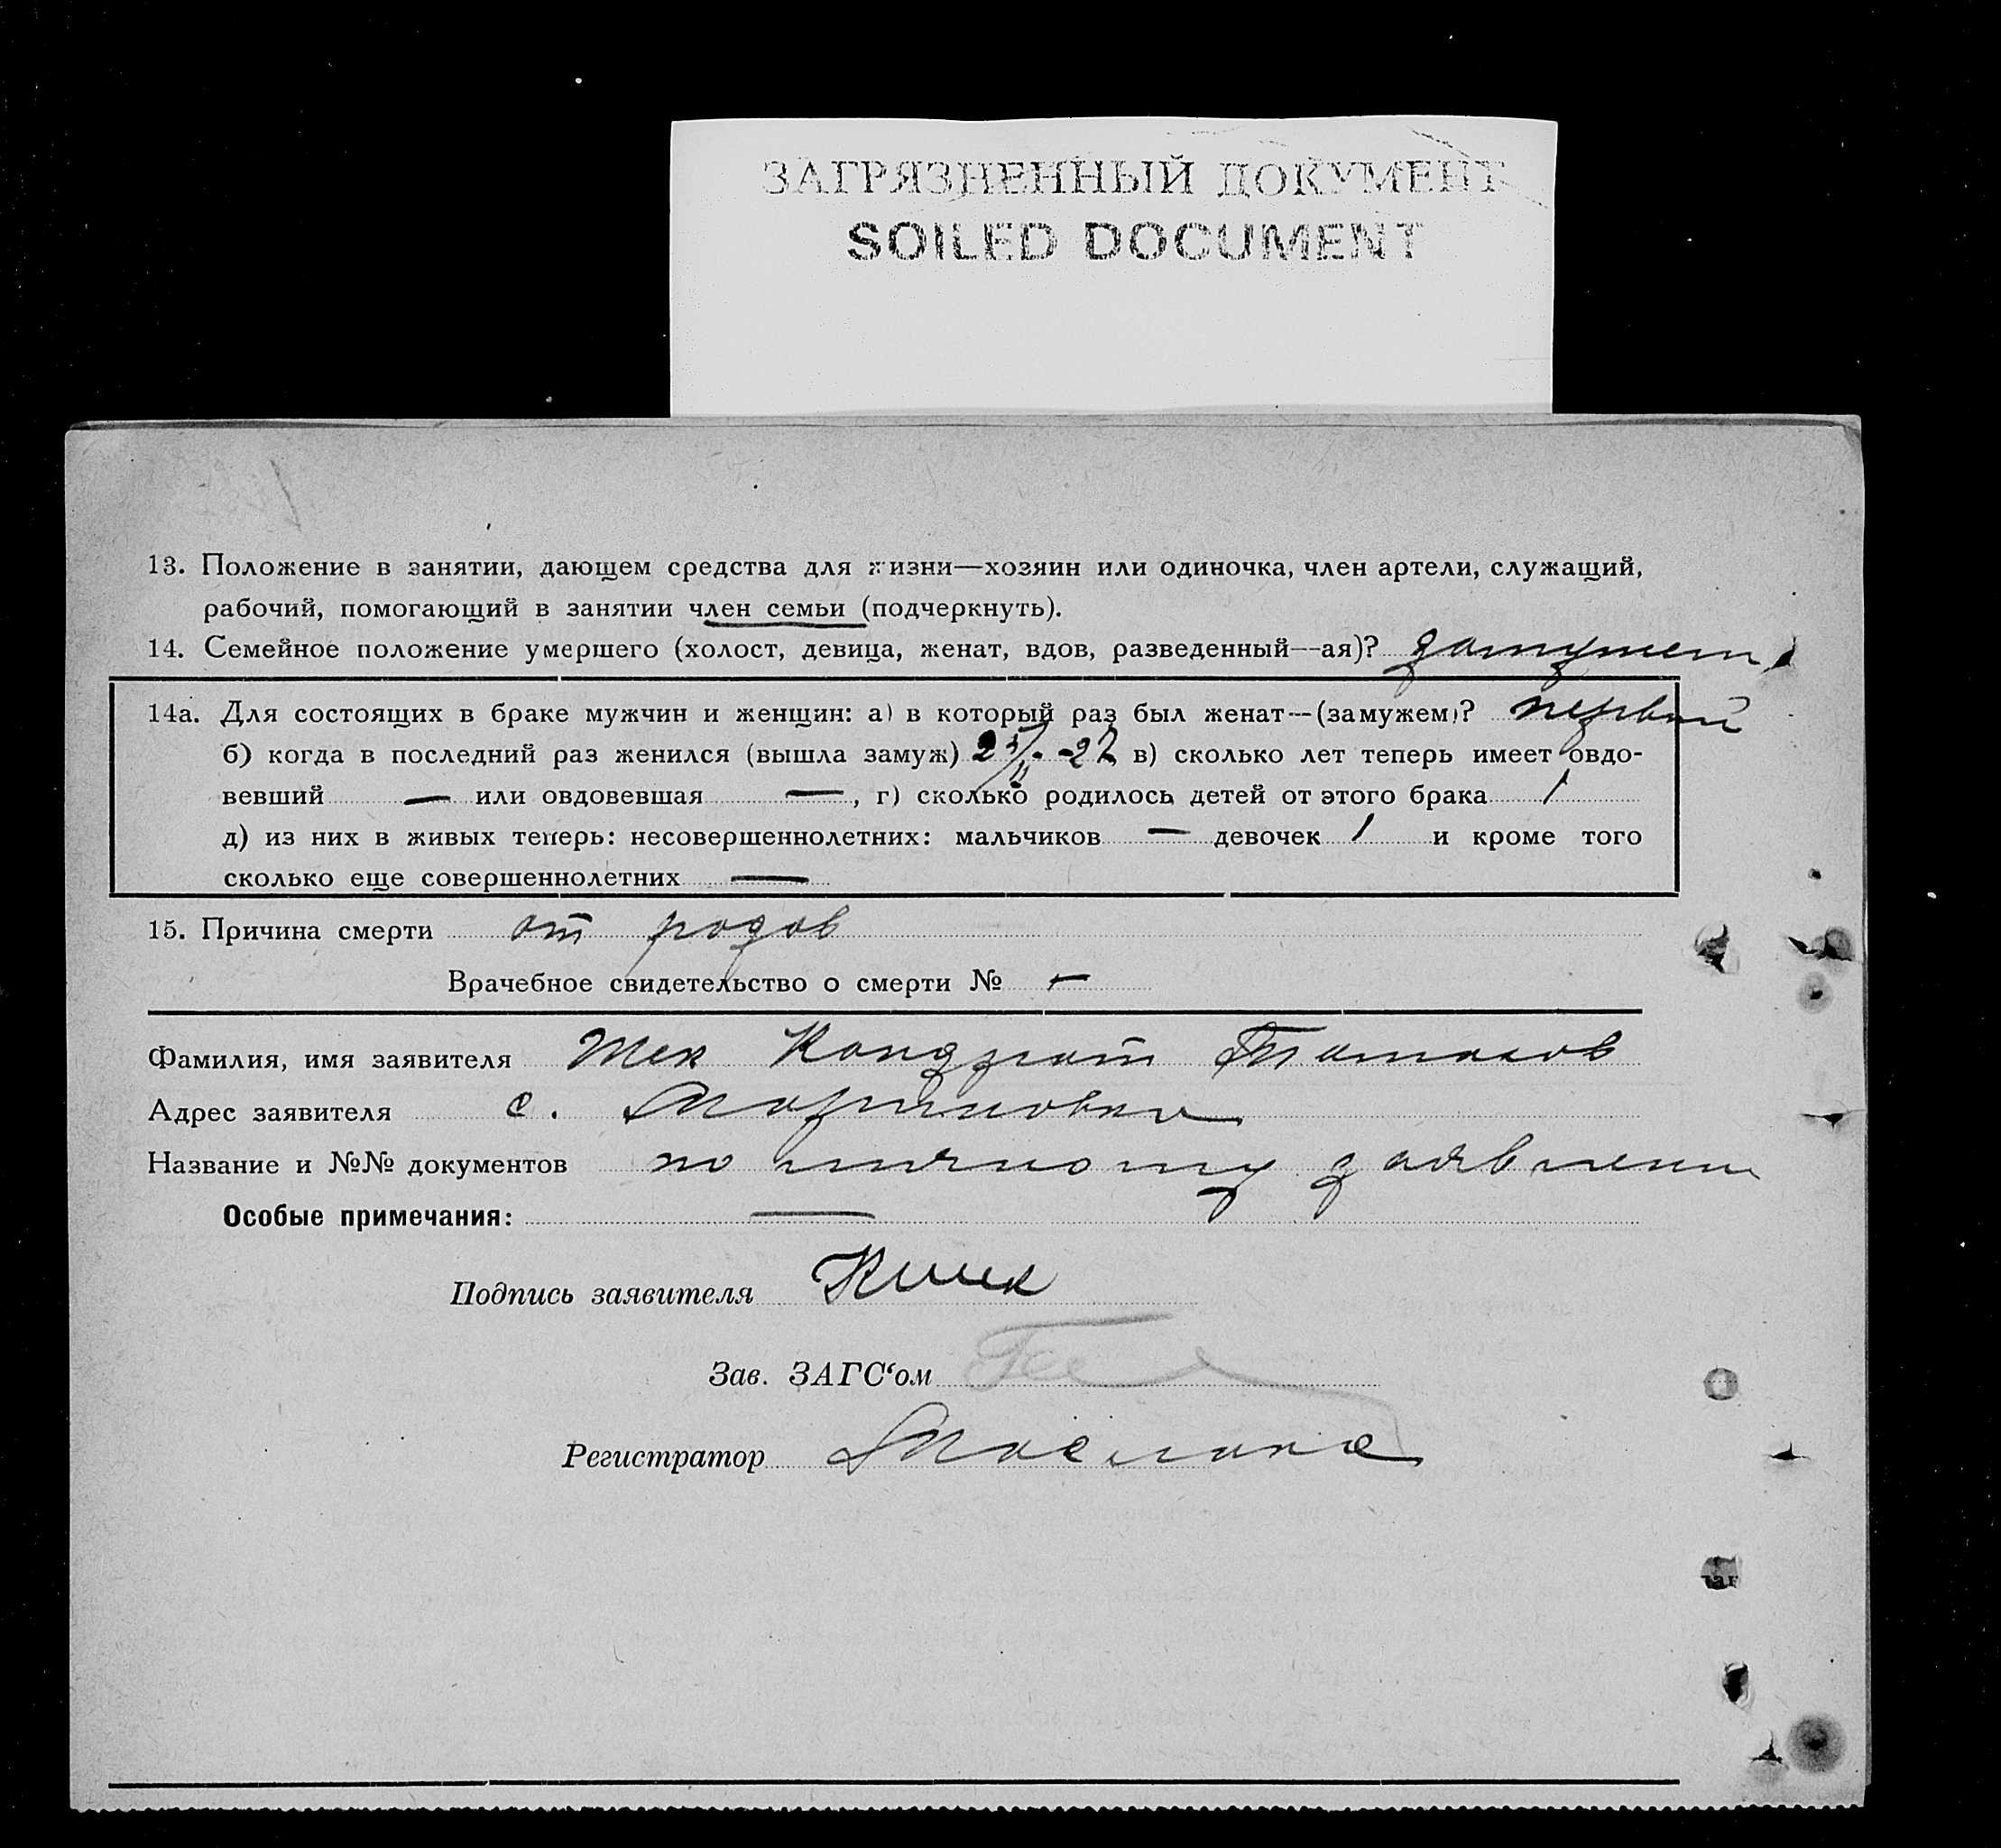 ЗАГРЯЗНЕННЫЙ ДОКУМЕНТ
SOILED DOCUMENT
13. Положение в занятии, дающем средства для жизни—хозяин или одиночка, член артели, служащий,
рабочий, помогающий в занятии член семьи (подчеркнуть).
14. Семейное положение умершего (холост, девица, женат, вдов, разведенный—ая)? замужем
14а. Для состоящих в браке мужчин и женщин: а) в который раз был женат—(замужем)? первый
б) когда в последний раз женился (вышла замуж) в) сколько лет теперь имеет овдо-
вевший — или овдовевшая —, г) сколько родилось детей от этого брака 1
д) из них в живых теперь: несовершеннолетних: мальчиков — девочек 1 и кроме того
сколько еще совершеннолетних —
15. Причина смерти от родов
Врачебное свидетельство о смерти № —
Фамилия, имя заявителя Кондрат
Адрес заявителя с.
Название и №№ документов по личному заявлению
Особые примечания: —
Подпись заявителя
Зав. ЗАГС‘ом
Регистратор